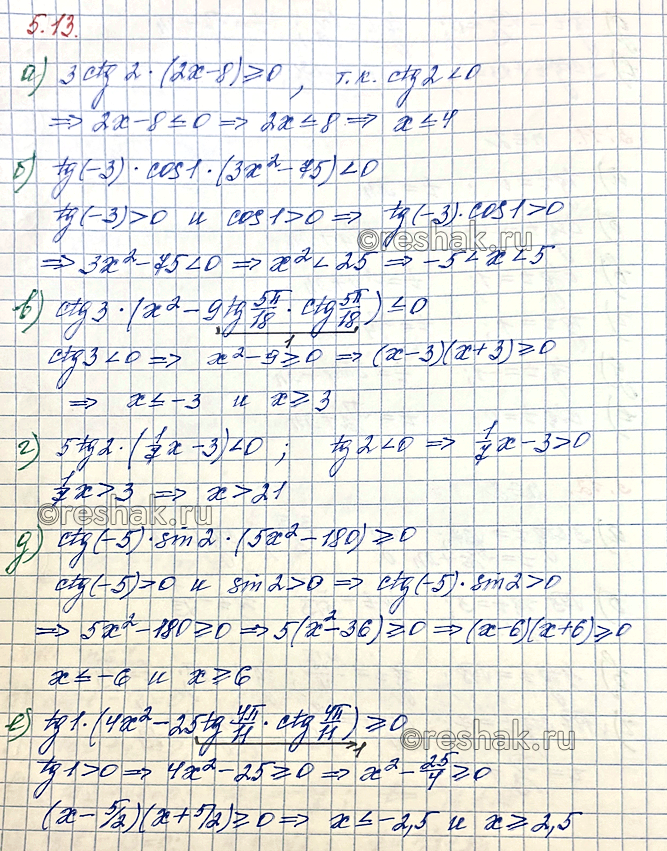 5.13.
а) 3ctg 2·(2x-8)≥0, т.к. ctg 2<0
⇒ 2x-8≤0 ⇒ 2x≤8 ⇒ x≤4
б) tg(-3)·cos1·(3x²-75)<0
tg(-3)>0 и cos1>0 ⇒ tg(-3)·cos1>0
©reshak.ru
⇒ 3x²-75<0 ⇒ x²<25 ⇒ -5<x<5
в) ctg3·(x²-9tg 5π/18 · ctg 5π/18)≤0
1
ctg3<0 ⇒ x²-9≥0 ⇒ (x-3)(x+3)≥0
⇒ x≤-3 и x≥3
г) 5tg2·(1/7x-3)<0; tg2<0 ⇒ 1/7x-3>0
1/7x>3 ⇒ x>21
©reshak.ru
д) ctg(-5)·sin2·(5x²-180)≥0
ctg(-5)>0 и sin2>0 ⇒ ctg(-5)·sin2>0
⇒ 5x²-180≥0 ⇒ 5(x²-36)≥0 ⇒ (x-6)(x+6)≥0
x≤-6 и x≥6
е) tg1·(4x²-25tg 4π/11 · ctg 4π/11)≥0
=1
©reshak.ru
tg1>0 ⇒ 4x²-25≥0 ⇒ x²-25/4≥0
(x-5/2)(x+5/2)≥0 ⇒ x≤-2,5 и x≥2,5